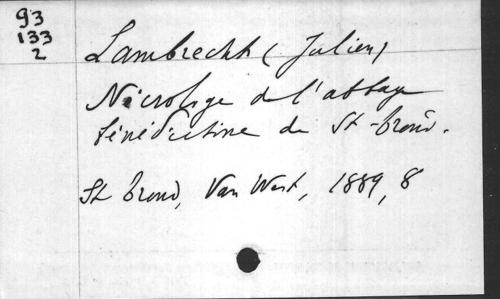 93
133
2
Lambrecht (Julien)
Nécrologe de l'abbaye
bénédictine de St-Trond.
St Trond, Van West, 1889, 8